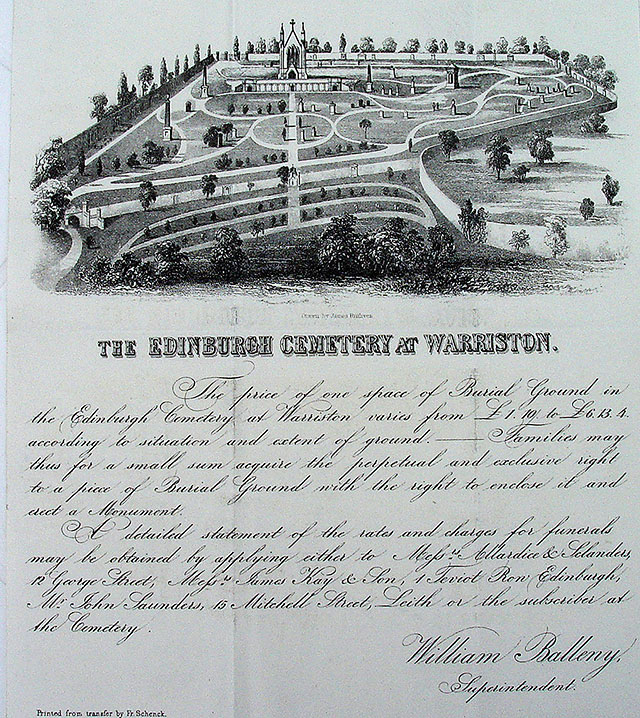 Drawn by James Ruthven
THE EDINBURGH CEMETERY AT WARRISTON.
The price of one space of Burial Ground in
the Edinburgh Cemetery at Warriston varies from £1.10 to £6.13.4.
according to situation and extent of ground. — Families may
thus for a small sum acquire the perpetual and exclusive right
to a piece of Burial Ground with the right to enclose it and
erect a Monument.
A detailed statement of the rates and charges for funerals
may be obtained by applying either to Messrs Allardice & Selanders,
12 George Street, Messrs James Kay & Son, 1 Teviot Row, Edinburgh,
Mr John Saunders, 15 Mitchell Street, Leith or the subscriber at
the Cemetery.
William Balleny,
Superintendent.
Printed from transfer by Fr. Schenck.